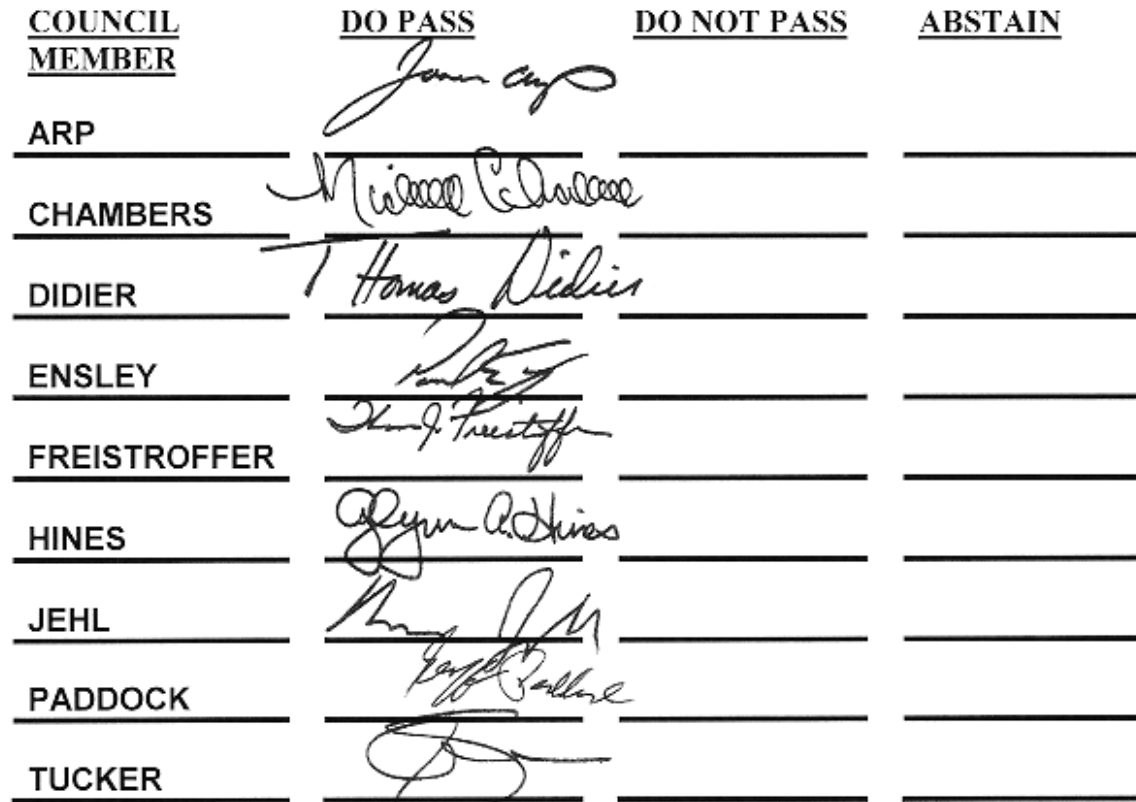 COUNCIL MEMBER DO PASS DO NOT PASS ABSTAIN
ARP
CHAMBERS Michelle Chambers
DIDIER THomas Didier
ENSLEY
FREISTROFFER Freistroffer
HINES Glynn A. Hines
JEHL
PADDOCK Paddock
TUCKER